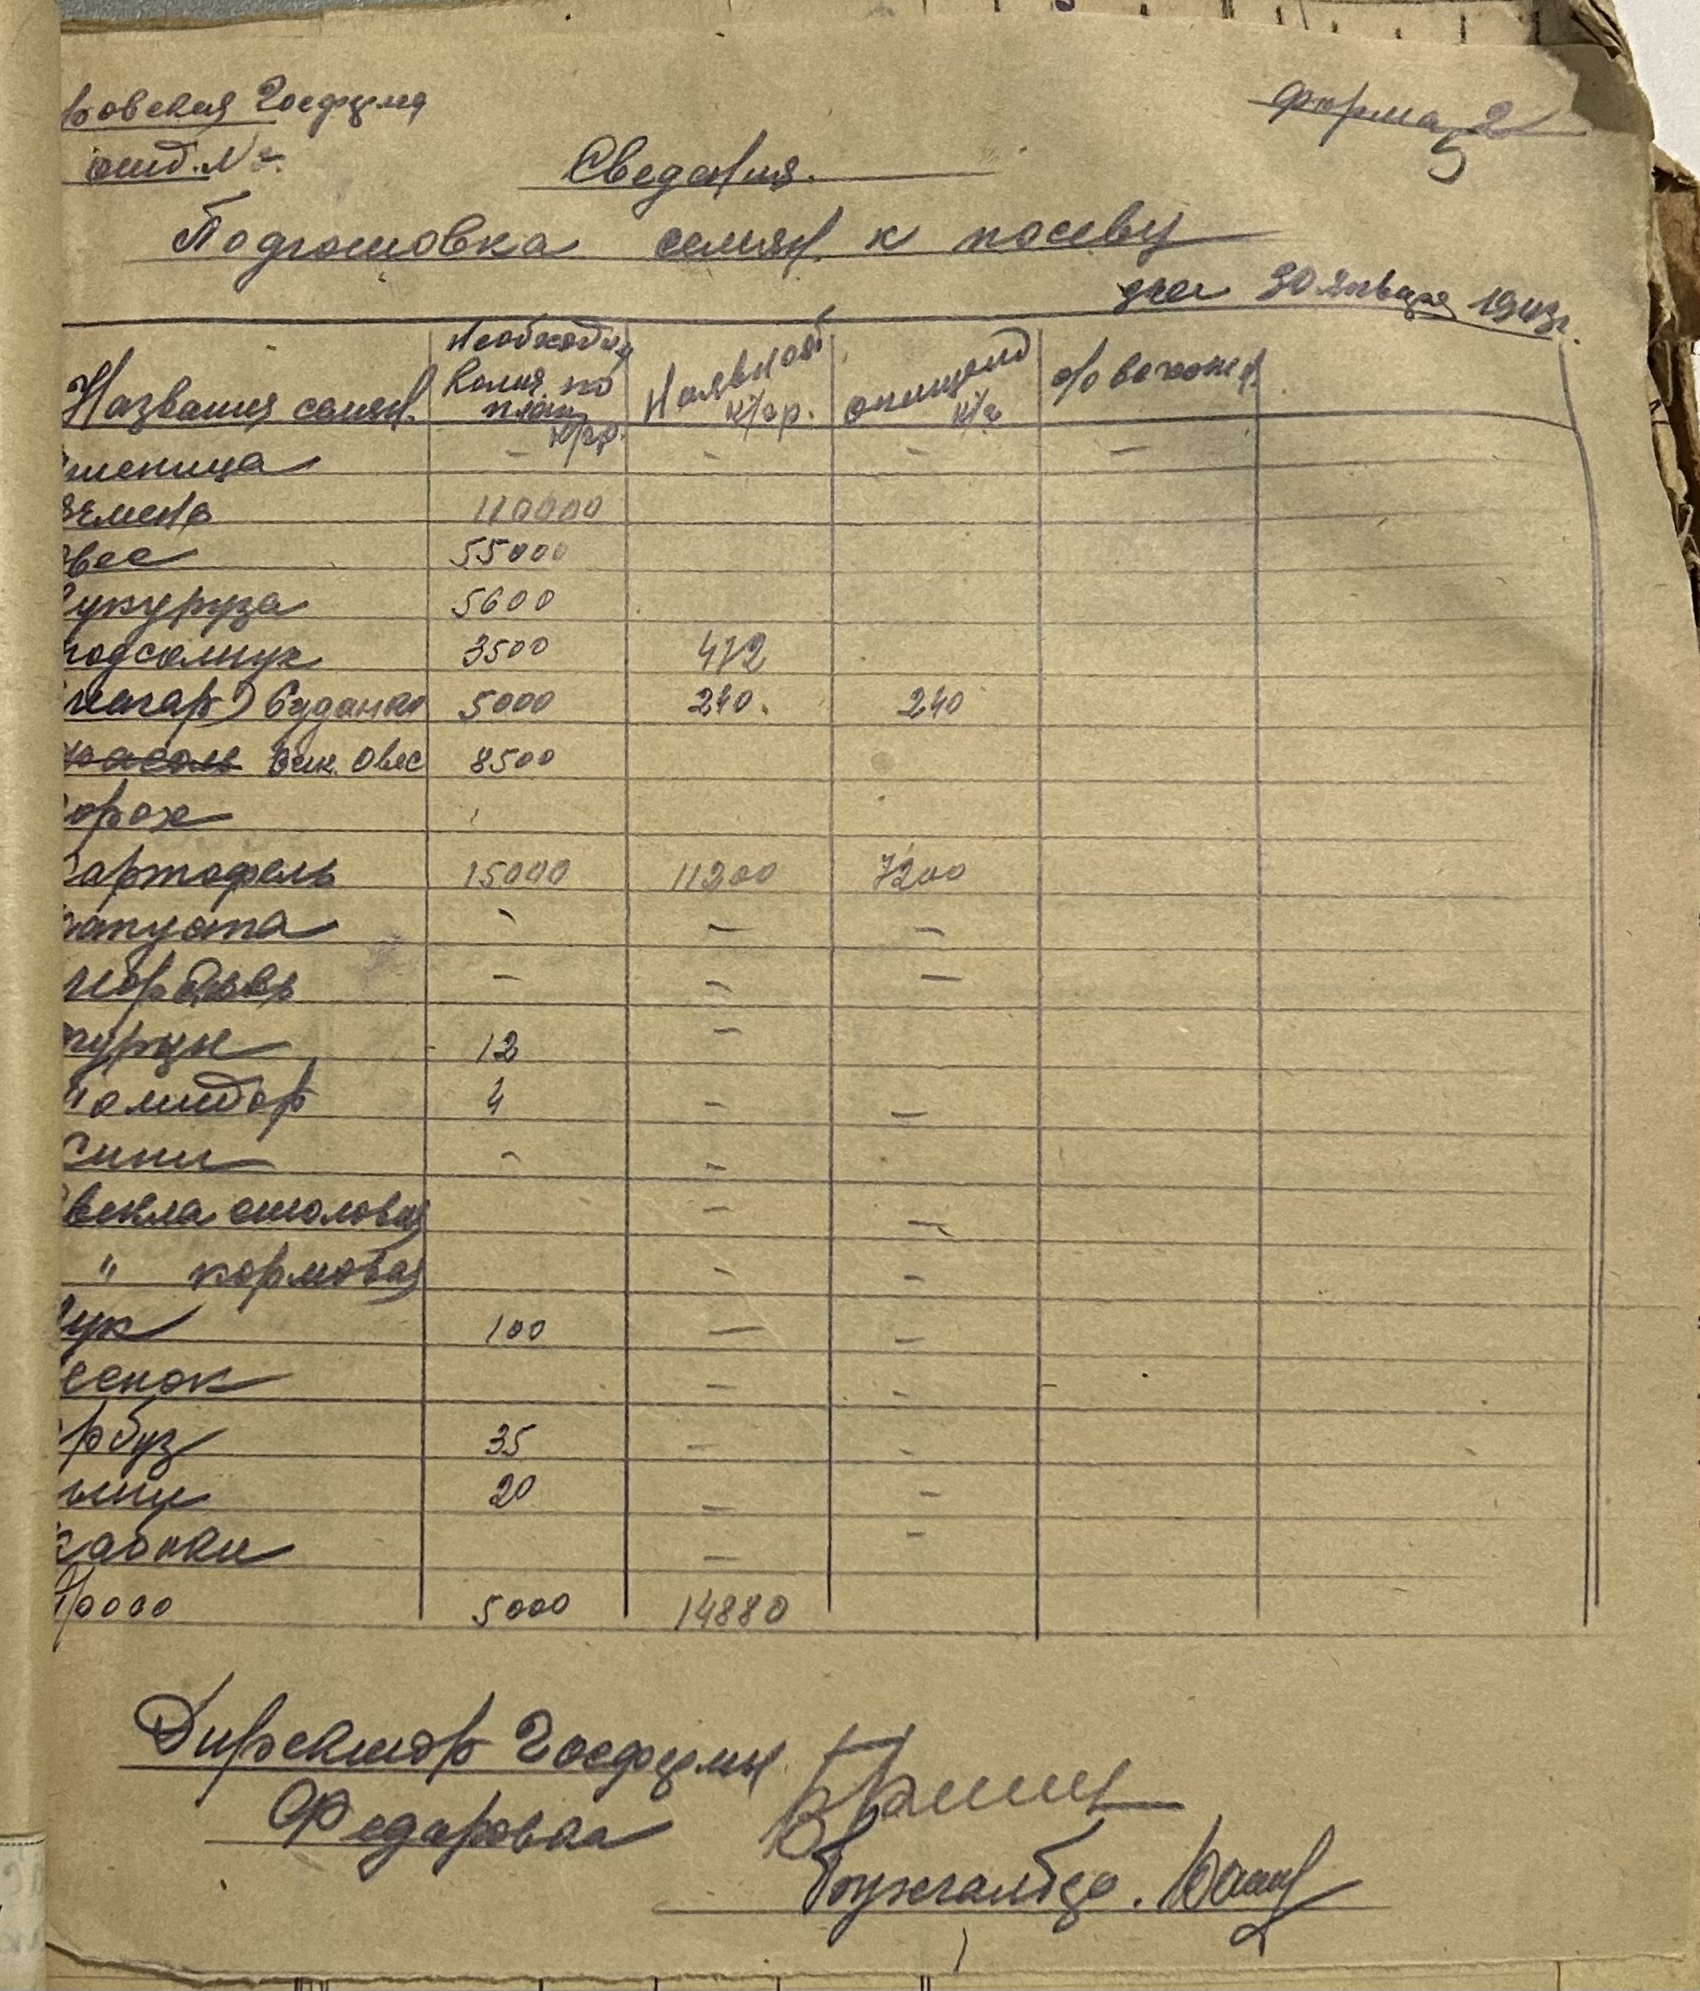 ровская Госфума
отд. №
Форма 2
5
Сведения.
Подготовка семян к посеву
на 30 января 1943г.
Названия семян. Необходим. Колич. по плану к/гр. Наявност к/гр. очищено к/г % всхожей
пшеница - - - -
Ячмень 110000
Овес 55000
Кукуруза 5600
подсолнух 3500 472
(могар) Суданка 5000 240. 240
фасоль Вик. Овес 8500
Горох
Картофель 15000 11200 7200
капуста - - -
морковь - - -
огурцы 12 -
Помидор 4 - -
Сини - -
Свекла столовая - -
" кормовая - -
Лук 100 - -
Чеснок - -
Арбуз 35 - -
Дыни 20 - -
кабаки - -
Просо 5000 14880
Директор Госфумы
Федаровка
Бухгалтер.